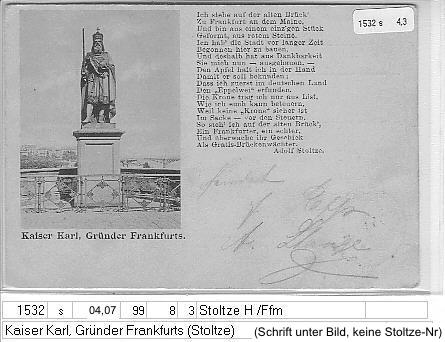 Ich stehe auf der alten Brück'
Zu Frankfurt an dem Maine,
Und bin aus einem einz'gen Stück
Geformt, aus rotem Steine.
Ich hab' die Stadt vor langer Zeit
Begonnen hier zu bauen,
Und deshalb hat aus Dankbarkeit
Sie mich nun — ausgehauen. —
Den Apfel halt ich in der Hand
Damit er soll bekunden;
Dass ich zuerst im deutschen Land
Den „Eppelwei" erfunden.
Die Krone trag ich nur aus List,
Wie ich euch kann beteuern,
Weil keine „Krone" sicher ist
Im Sacke — vor den Steuern.
So steh' ich auf der alten Brück',
Ein Frankfurter, ein echter,
Und überwache ihr Geschick
Als Gratis-Brückenwächter.
Adolf Stoltze.
1532 s 4,3
Kaiser Karl, Gründer Frankfurts.
1532 s 04,07 99 8 3 Stoltze H /Ffm
Kaiser Karl, Gründer Frankfurts (Stoltze) (Schrift unter Bild, keine Stoltze-Nr)